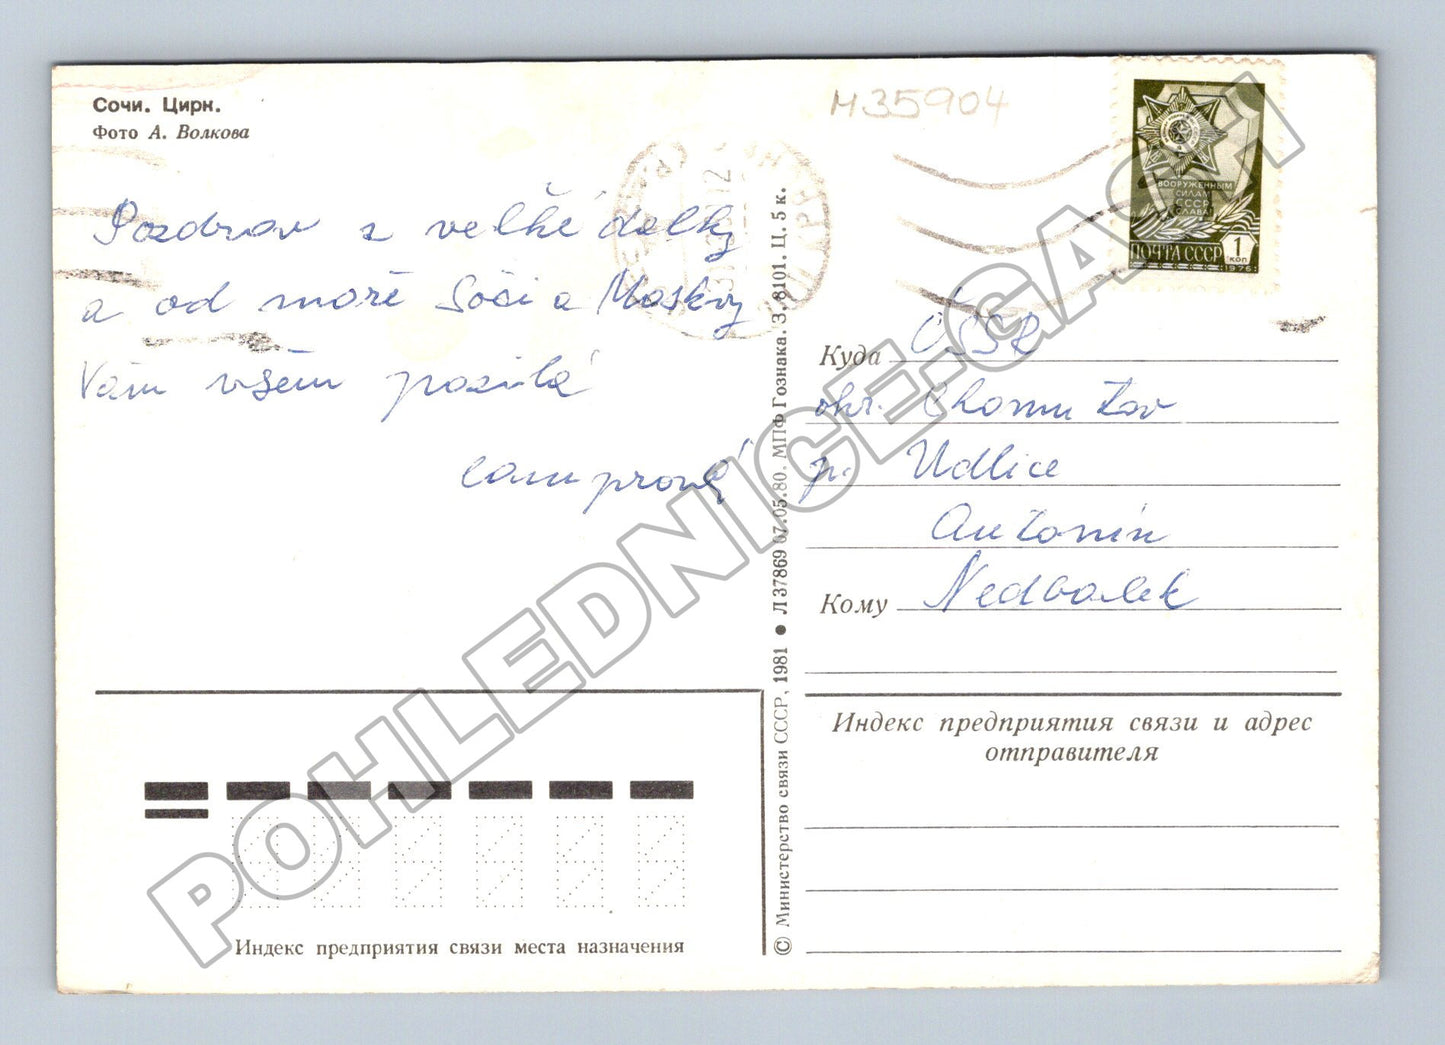 Сочи. Цирк.
Фото А. Волкова
М35904
Pozdrav z velké dálky
a od moře Soči a Moskvy
Vám všem posílá
ВООРУЖЕННЫМ
СИЛАМ
СССР
СЛАВА!
ПОЧТА СССР 1
КОП
1976
Куда ČSSR
okr. Chomutov
p. Udlice
Antonín
Кому Nedbálek
Индекс предприятия связи и адрес
отправителя
Индекс предприятия связи места назначения
© Министерство связи СССР, 1981 ● Л 37869 07.05.80. МПФ Гознака. З. 8101. Ц. 5 к.
POHLEDNICE-GASH